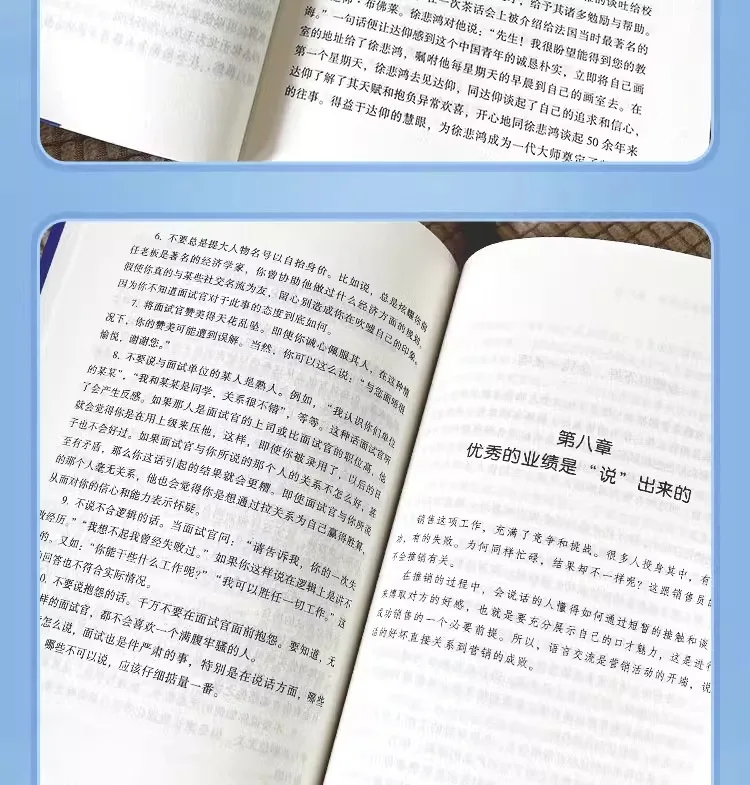 的谈吐给校
给予其诸多勉励与帮助。
在一次茶话会上被介绍给法国当时最著名的
达仰·布佛莱。徐悲鸿对他说：“先生！我很盼望能得到您的教
诲。”一句话便让达仰感到这个中国青年的诚恳朴实，立即将自己画
室的地址给了徐悲鸿，嘱咐他每星期天的早晨到自己的画室去。在
第一个星期天，徐悲鸿去见达仰，同达仰谈起了自己的追求和信心、
达仰了解了其天赋和抱负异常欢喜，开心地同徐悲鸿谈起50余年来
的往事。得益于达仰的慧眼，为徐悲鸿成为一代大师奠定了
6. 不要总是提大人物名号以自抬身价。比如说，总是炫耀你前
任老板是著名的经济学家，你曾协助他做过什么经济方面的规划，
假使你真的与某些社交名流为友，留心别造成你在吹嘘自己的印象，
因为你不知道面试官对于此事的态度到底如何。
7. 将面试官赞美得天花乱坠。即使你诚心佩服其人，在这种情
况下，你的赞美可能遭到误解。当然，你可以这么说：“与您面谈很
愉悦，谢谢您。”
8. 不要说与面试单位的某人是熟人。例如，“我认识你们单位
的某某”，“我和某某是同学，关系很不错”，等等。这种话面试官听
了会产生反感。如果那人是面试官的上司或比面试官的职位高，他
就会觉得你是在用上级来压他，这样，即使你被录用了，以后的日
子也不会好过。如果面试官与你所说的那个人的关系不怎么好，甚
至有矛盾，那么你这话引起的结果就会更糟。即使面试官与你所说
的那个人毫无关系，他也会觉得你是想通过拉关系为自己赢得胜算，
从而对你的信心和能力表示怀疑。
9. 不说不合逻辑的话。当面试官问：“请告诉我，你的一次失
败经历。”“我想不起我曾经失败过。”如果你这样说在逻辑上是讲不
的。又如：“你能干些什么工作呢？”“我可以胜任一切工作。”这
回答也不符合实际情况。
0. 不要说抱怨的话。千万不要在面试官面前抱怨。要知道，无
样的面试官，都不会喜欢一个满腹牢骚的人。
怎么说，面试也是件严肃的事，特别是在说话方面，哪些
哪些不可以说，应该仔细掂量一番。
第八章
优秀的业绩是“说”出来的
销售这项工作，充满了竞争和挑战。很多人投身其中，有
功，有的失败。为何同样忙碌，结果却不一样呢？这跟销售员
不会推销有关。
在推销的过程中，会说话的人懂得如何通过短暂的接触和谈
来博取对方的好感，也就是要充分展示自己的口才魅力，这是进行
成功销售的一个必要前提。所以，语言交流是营销活动的开端，说
话的好坏直接关系到营销的成败。